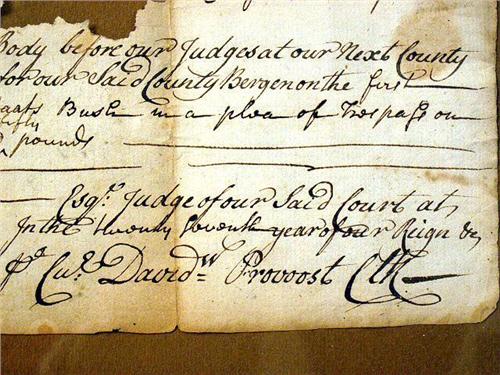 Body before our Judges at our Next County
for our Said County Bergen on the first
aats Bush in a plea of Trespass on
fifty
pounds
Esqr. Judge of our Said Court at
In the twenty Seventh year of our Reign &c
Pr Cur. Davidw Provoost Clk